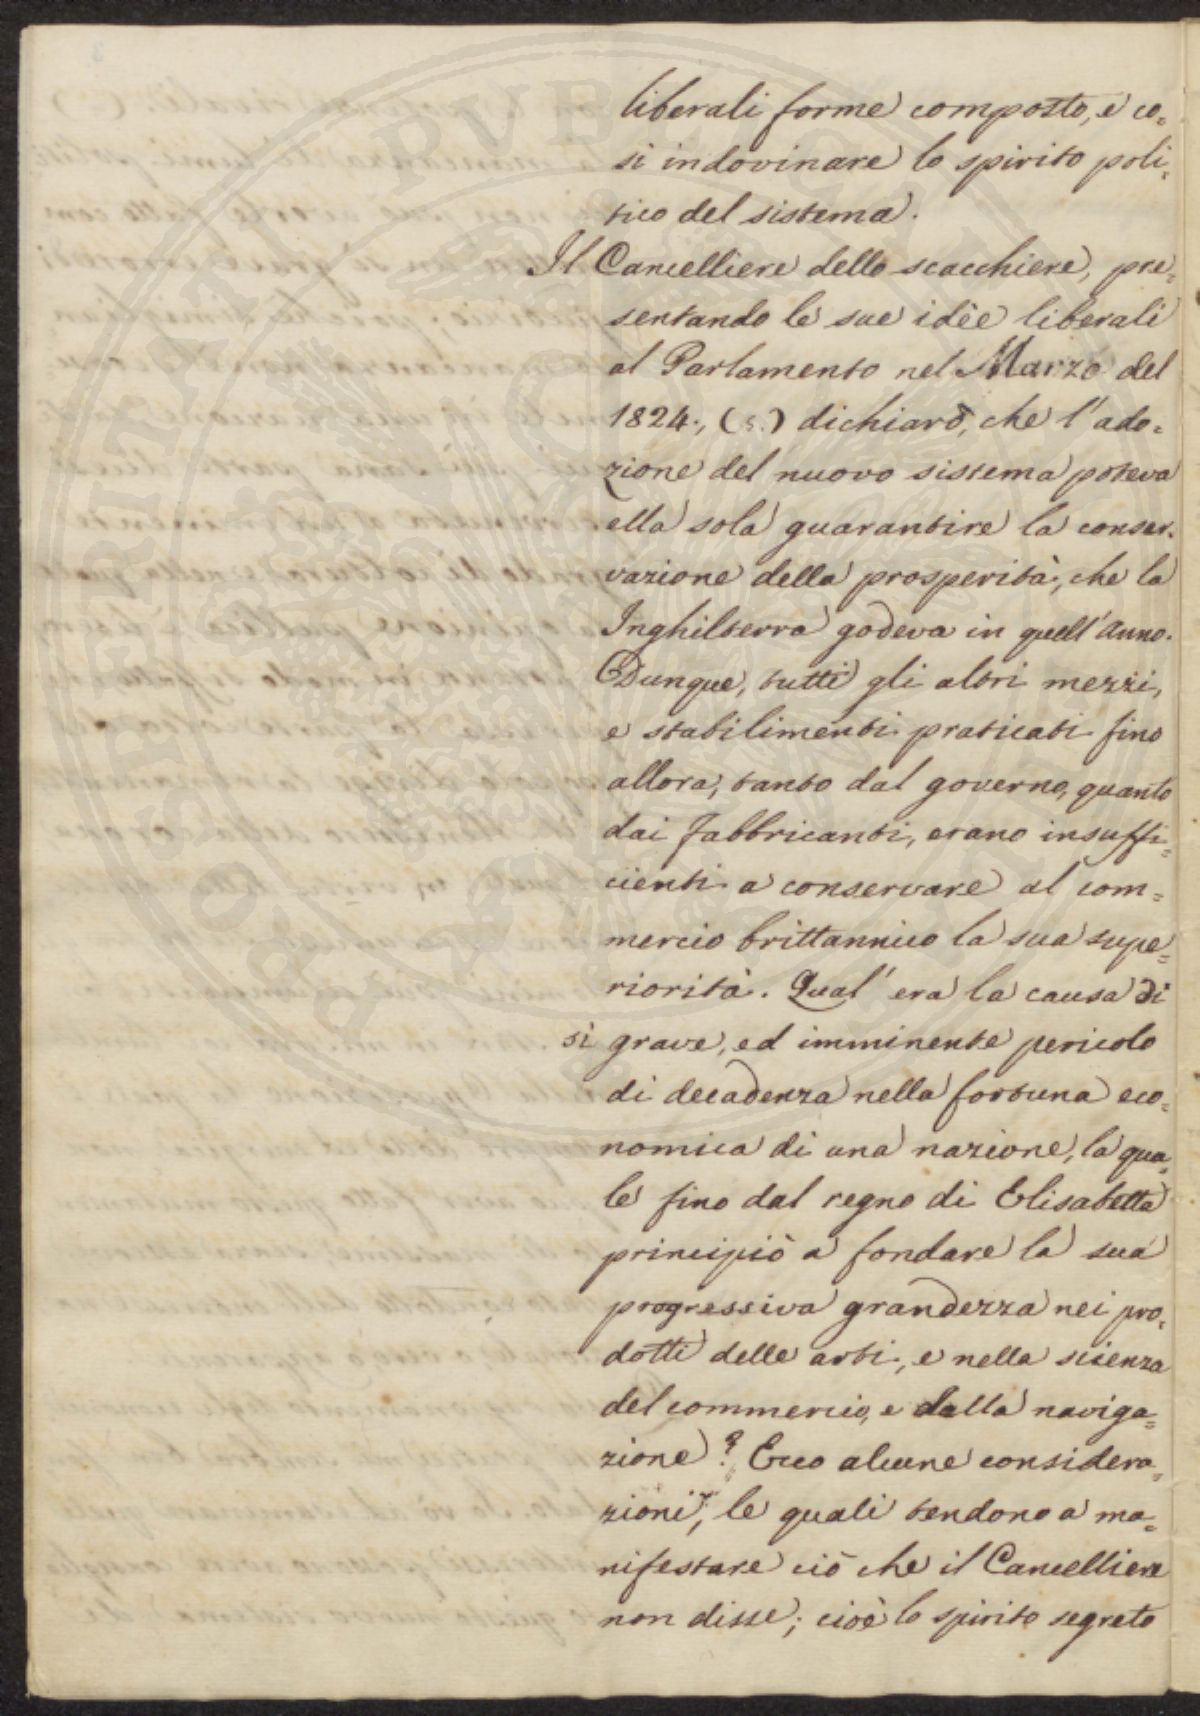 liberali forme composto, e co=
sì indovinare lo spirito poli=
tico del sistema.
Il Cancelliere dello scacchiere, pre=
sentando le sue idèe liberali
al Parlamento nel Marzo del
1824., (5.) dichiarò, che l'ado=
zione del nuovo sistema poteva
ella sola guarantire la conser=
vazione della prosperità, che la
Inghilterra godeva in quell'anno.
Dunque, tutti gli altri mezzi,
e stabilimenti praticati fino
allora, tanto dal governo, quanto
dai fabbricanti, erano insuffi=
cienti a conservare al com=
mercio brittannico la sua supe=
riorità. Qual' era la causa di
sì grave, ed imminente pericolo
di decadenza nella fortuna eco=
nomica di una nazione, la qua=
le fino dal regno di Elisabetta
principiò a fondare la sua
progressiva grandezza nei pro=
dotti delle arti, e nella scienza
del commercio, e della naviga=
zione? Ecco alcune considera=
zioni, le quali tendono a ma=
nifestare ciò che il Cancelliere
non disse; cioè lo spirito segreto